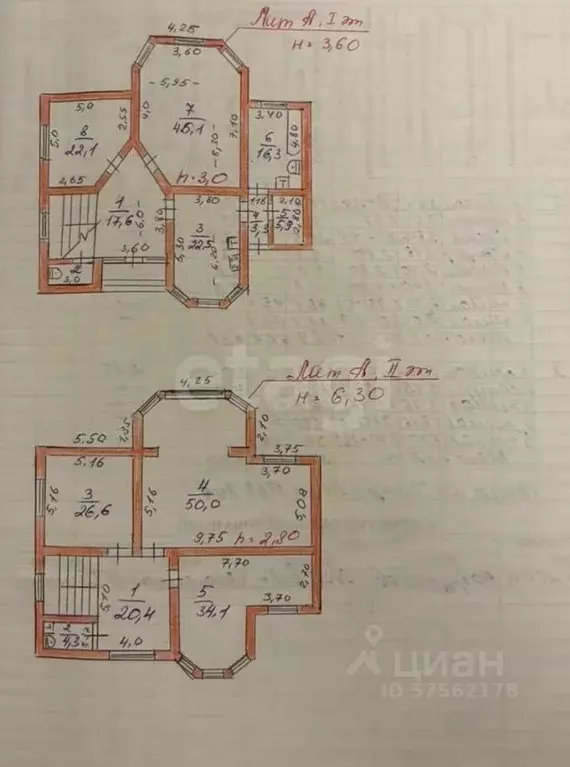 Лит А. I эт
H = 3,60
4,25
3,60
5,95
5,0
2,55
4,0
7
45,1
7,10
3,40
8
22,1
5,0
6
16,3
4,80
2,65
h=3,0
1
17,6
6,0
3,80
3,60
3
22,5
5,30
6,20
1,18
4
3,3
2,10
5
5,9
2,80
3,60
2
3,0
Лит А. II эт
H = 6,30
4,25
5.50
1,35
2,10
3,75
5.16
3,70
5,16
3
26,6
5,16
4
50,0
5,08
9,75
h=2,80
7,70
2,70
5,10
1
20,4
5
34,1
3,70
2
4,3
4,0
etagi
циан
ID 57562178